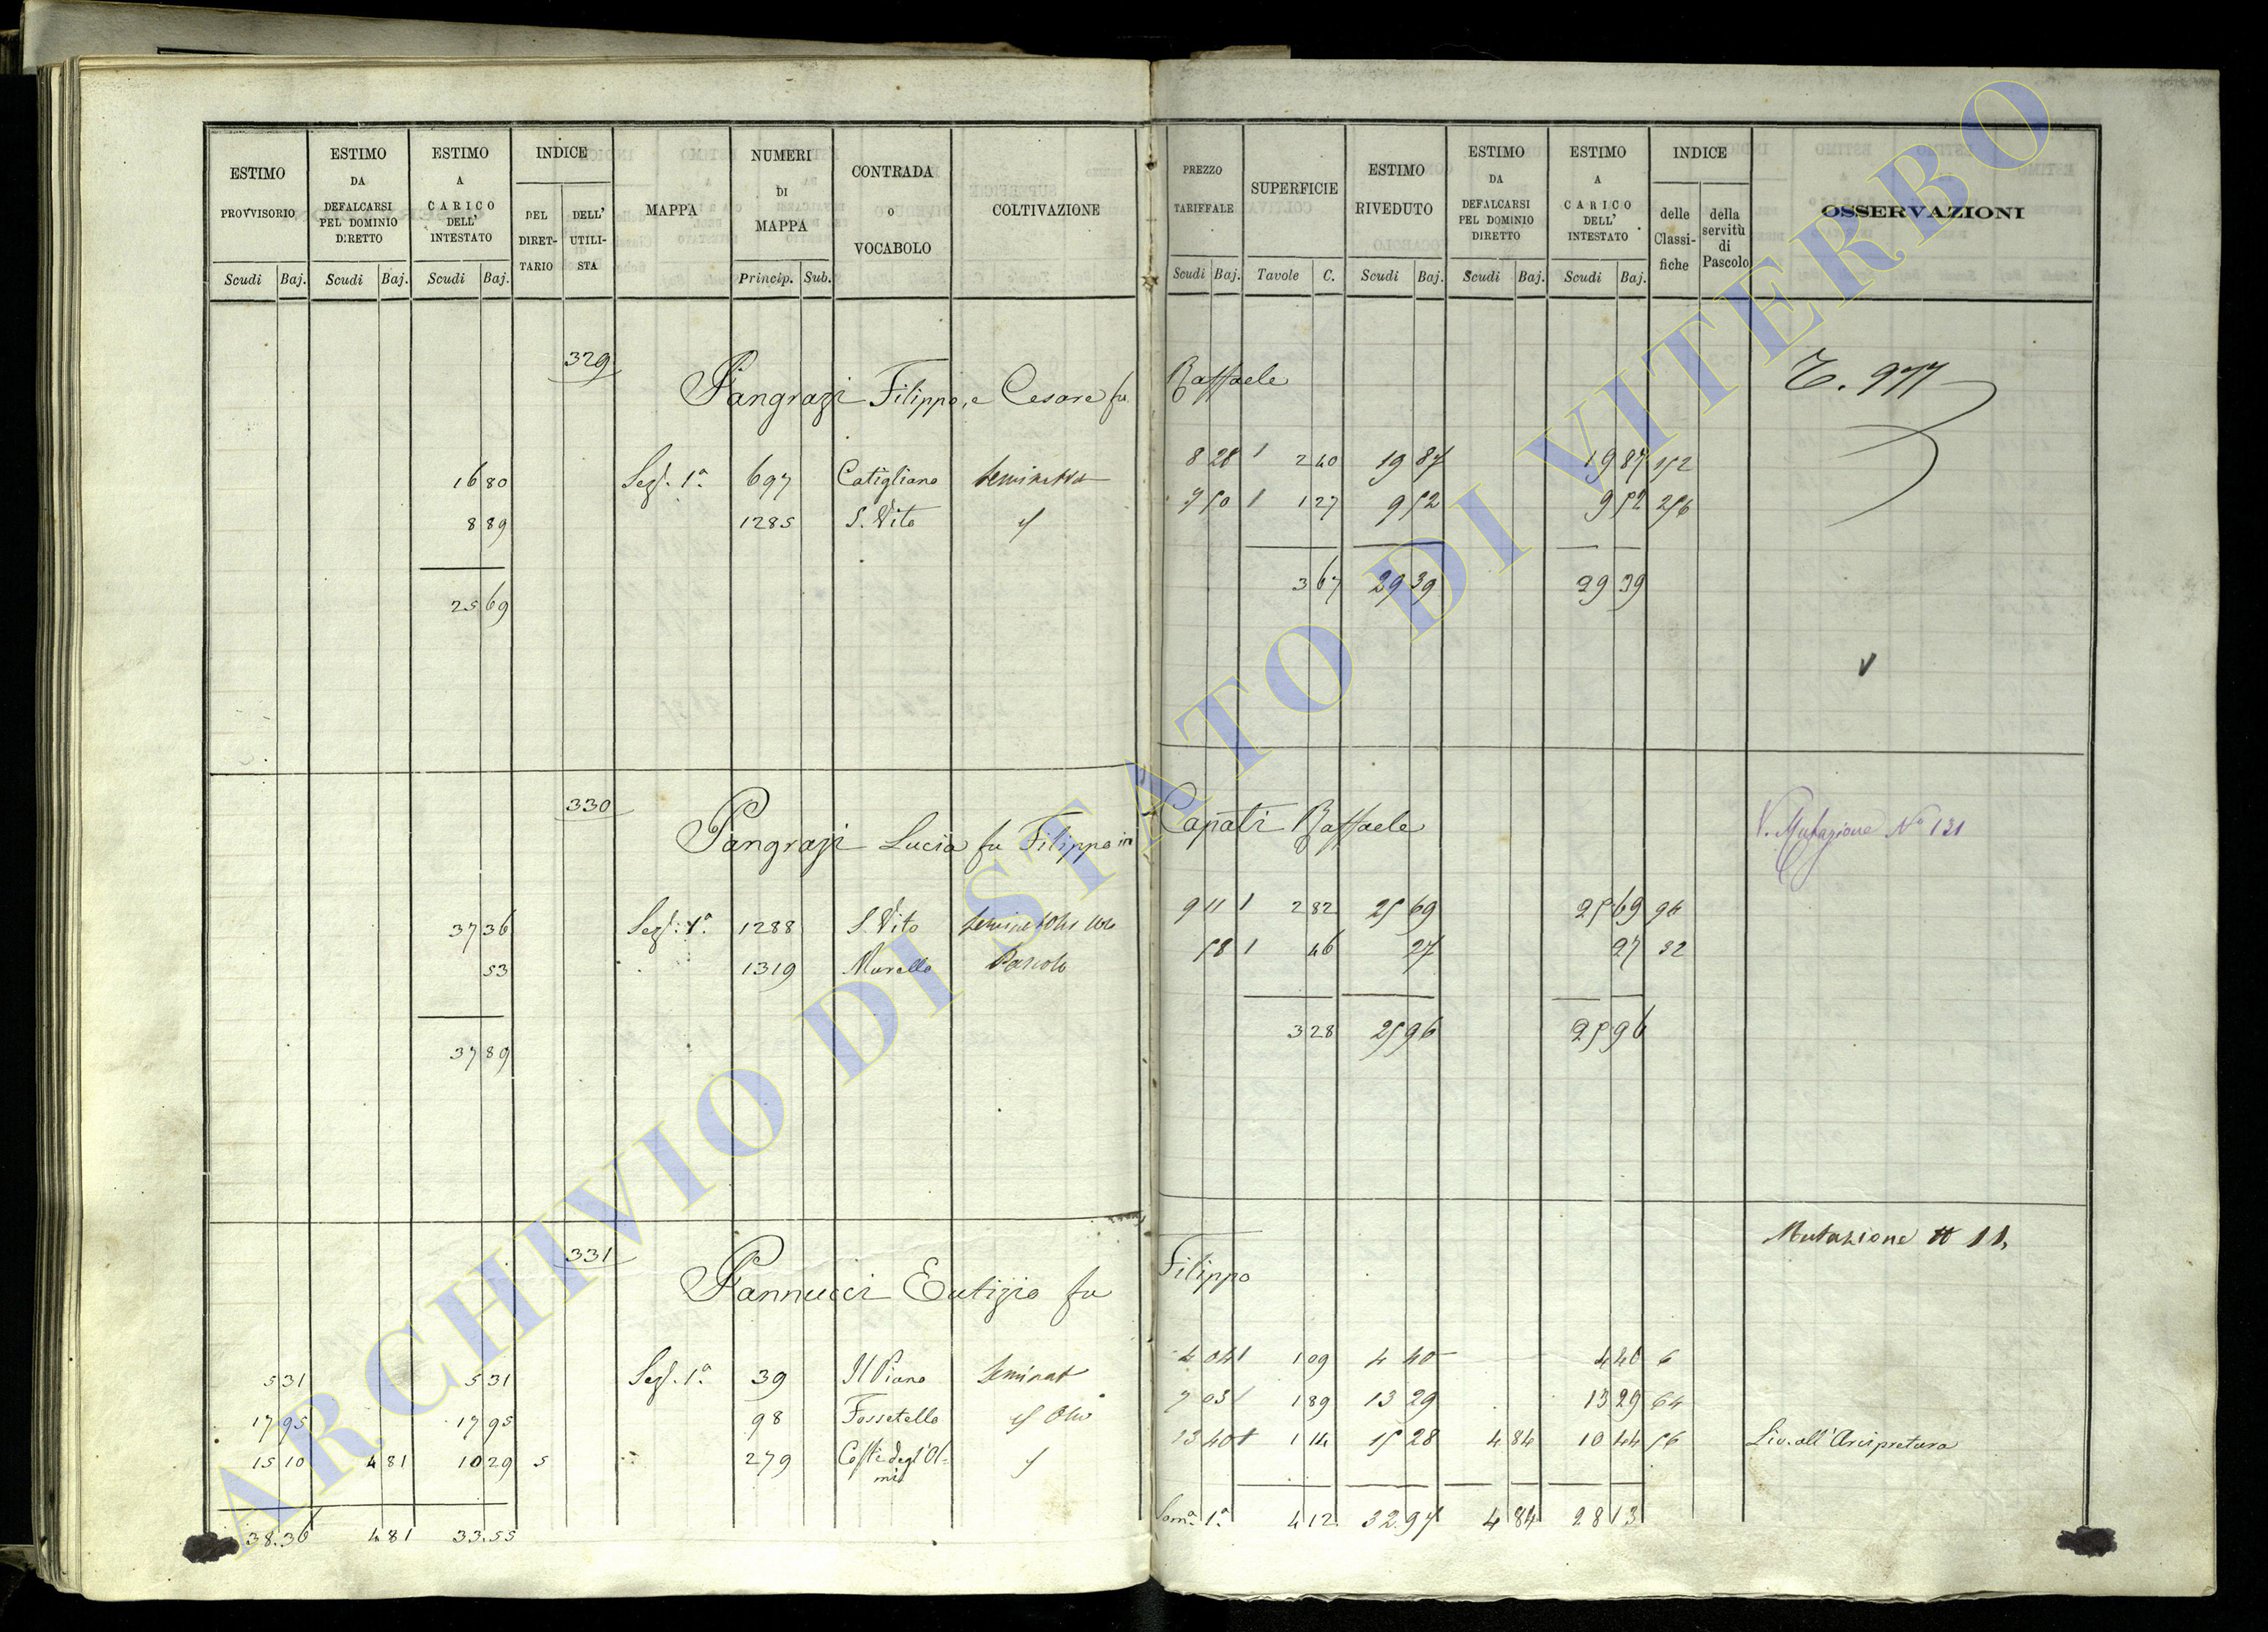 ESTIMO PROVVISORIO Scudi Baj.
ESTIMO DA DEFALCARSI PEL DOMINIO DIRETTO Scudi Baj.
ESTIMO A CARICO DELL' INTESTATO Scudi Baj.
INDICE DEL DIRETTARIO DELL' UTILISTA
MAPPA
NUMERI DI MAPPA Princip. Sub.
CONTRADA O VOCABOLO
COLTIVAZIONE
PREZZO TARIFFALE Scudi Baj.
SUPERFICIE Tavole C.
ESTIMO RIVEDUTO Scudi Baj.
ESTIMO DA DEFALCARSI PEL DOMINIO DIRETTO Scudi Baj.
ESTIMO A CARICO DELL' INTESTATO Scudi Baj.
INDICE delle Classifiche della servitù di Pascolo
OSSERVAZIONI
329 Pangrazi Filippo, e Cesare fu Raffaele
16 80 Sez. 1a. 697 Catigliano 8 28 1 2 40 19 87 19 87 152
8 89 1285 S. Vito 7 50 1 1 27 9 52 9 52 256
25 69 3 67 29 39 29 39
330 Pangrazi Lucia fu Filippo in Capati Raffaele V. Mutazione No 131
37 36 Sez. 1a. 1288 S. Vito 9 11 1 2 82 25 69 25 69
53 1319 Murello Pascolo 58 1 46 27 27 32
37 89 3 28 25 96 25 96
331 Pannucci Eutizio fu Filippo Mutazione N 11
5 31 5 31 Sez. 1a. 39 Il Piano Seminat 4 04 1 1 09 4 40 4 40 6
17 95 17 95 98 Fossetello 7 03 1 1 89 13 29 13 29 64
15 10 4 81 10 29 5 279 Coste degl'Olmi 13 40 1 1 14 15 28 4 84 10 44 56 Liv. all'Arcipretura
38.36 4 81 33.55 Soma. 1a. 4 12 32 97 4 84 28 13
ARCHIVIO DI STATO DI VITERBO